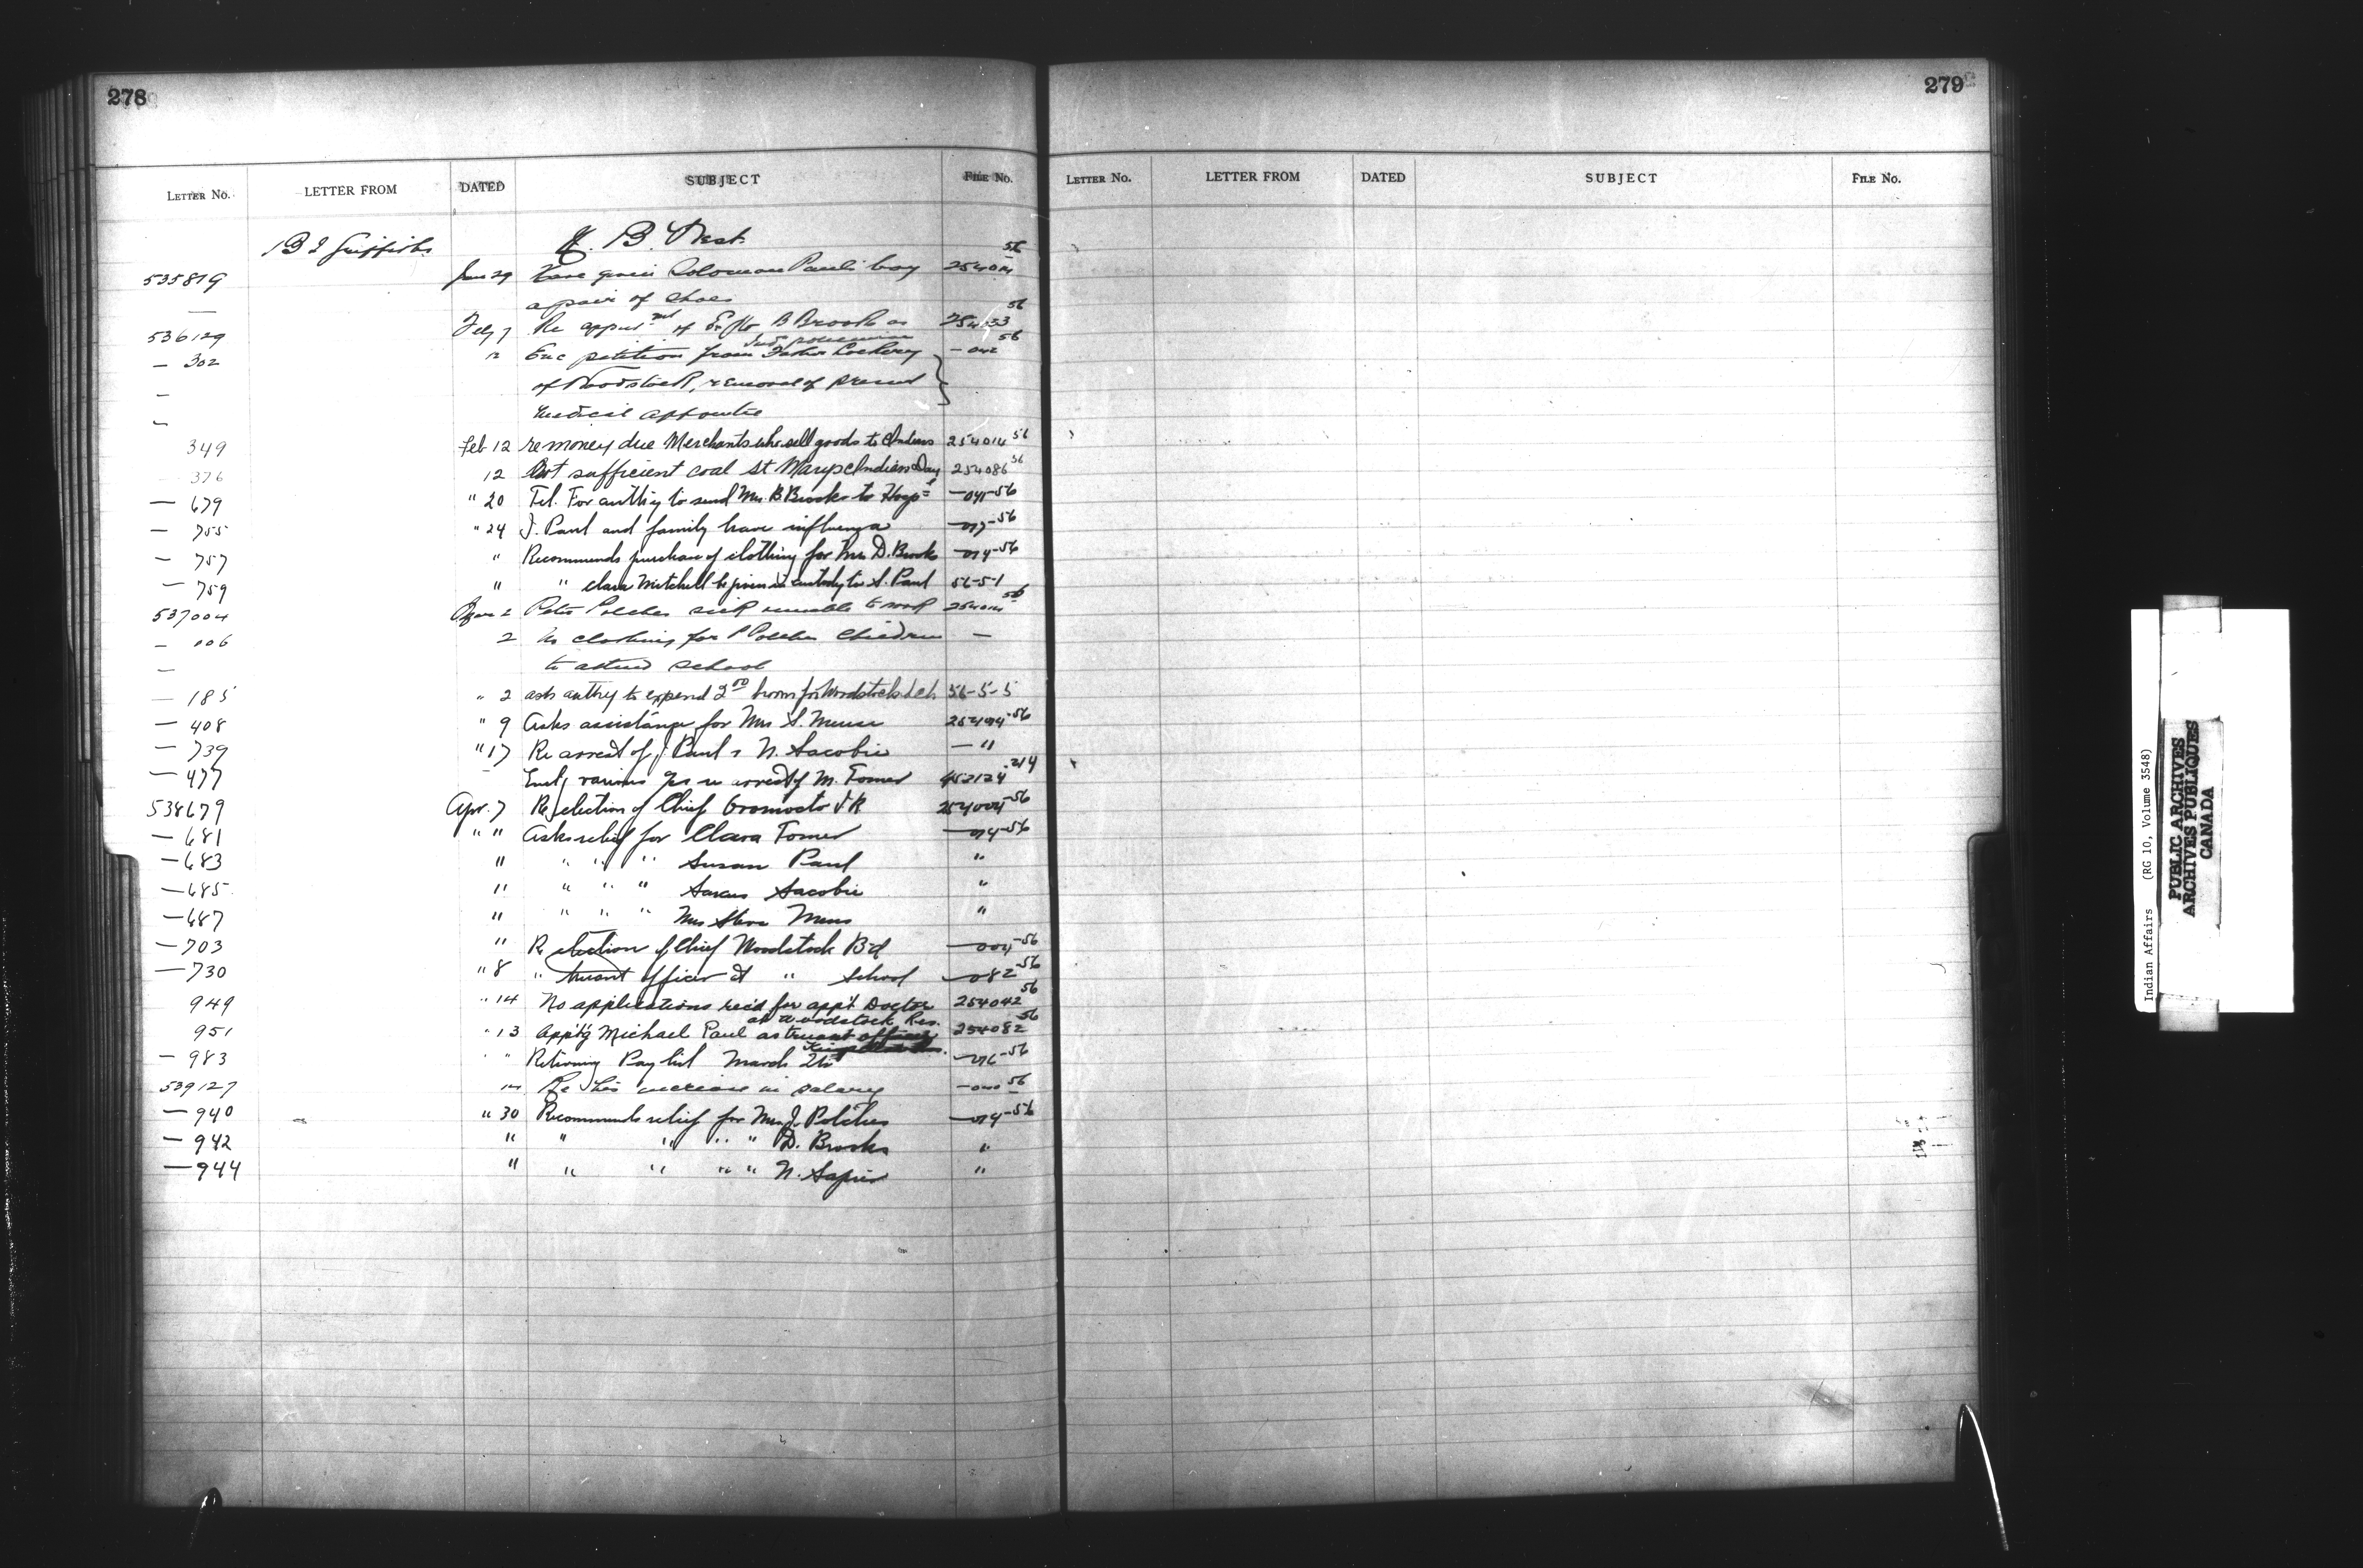 278
LETTER NO. LETTER FROM DATED SUBJECT FILE No.
B J Griffiths N. B. West
535819 Jan 29 Have given Solomon Paul's boy 254014 56
a pair of shoes
536129 Feb 7 Re appnt of B Brooks as 254033 56
Ind policeman
— 302 12 Enc petition from Father — 042 56
of Woodstock, removal of present
medical
349 Feb 12 re money due Merchants who sell goods to Indians 254014 56
376 12 Not sufficient coal St Marys Indian Day 254086 56
— 679 " 20 Tel. For authy to send Mrs B Brooks to Hosp — 041-56
— 755 " 24 J. Paul and family have influenza
— 757 " Recommends purchase of clothing for Mrs D. Brooks — 014-56
— 759 " " Clara Mitchell be given in custody to S. Paul 56-5-1
537004 2 Peter Polches sick unable to work 254014 56
— 006 2 No clothing for P Polches Children —
to attend school
— 185 " 2 asks authy to expend 2.00 for Woodstock Sch 56-5-5
— 408 " 9 Asks assistance for Mrs S. Meuse 254014-56
— 739 " 17 Re arrest of J Paul & N. Sacobie — "
— 477 Encl various re arrest of M. Tomer 452124-214
538679 Apr. 7 Re election of Chief Oromocto I R 254004-56
— 681 " " Asks relief for Clara Tomer — 014-56
— 683 " " " " Susan Paul "
— 685 " " " " Sacobie "
— 687 " " " " Mrs Steve Meuse "
— 703 " Re election of Chief Woodstock Bd — 004-56
— 730 " 8 " truant officer at " School — 082-56
949 " 14 No applications rec'd for app't Doctor 254042 56
at Woodstock Res.
951 " 13 Appt'g Michael Paul as truant officer 254082 56
— 983 " " Returning Pay list March — 016-56
539127 14 Re his increase in salary 56
— 940 " 30 Recommends relief for Mrs J. Polches — 014-56
— 942 " " " " " D. Brooks "
— 944 " " " " " N. Sapier "
279
LETTER No. LETTER FROM DATED SUBJECT FILE No.
Indian Affairs (RG 10, Volume 3548)
PUBLIC ARCHIVES
ARCHIVES PUBLIQUES
CANADA